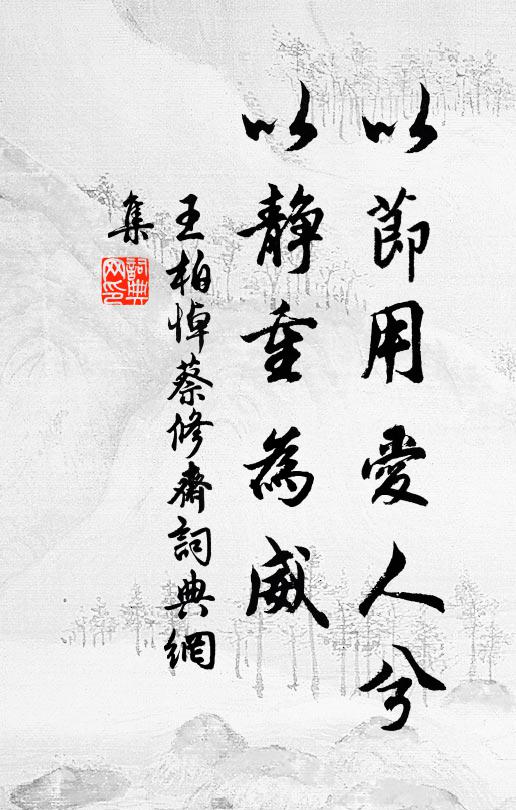 以節用愛人兮
以靜重為威
王柏悼蔡修齋詞典網
集
詞典
网印